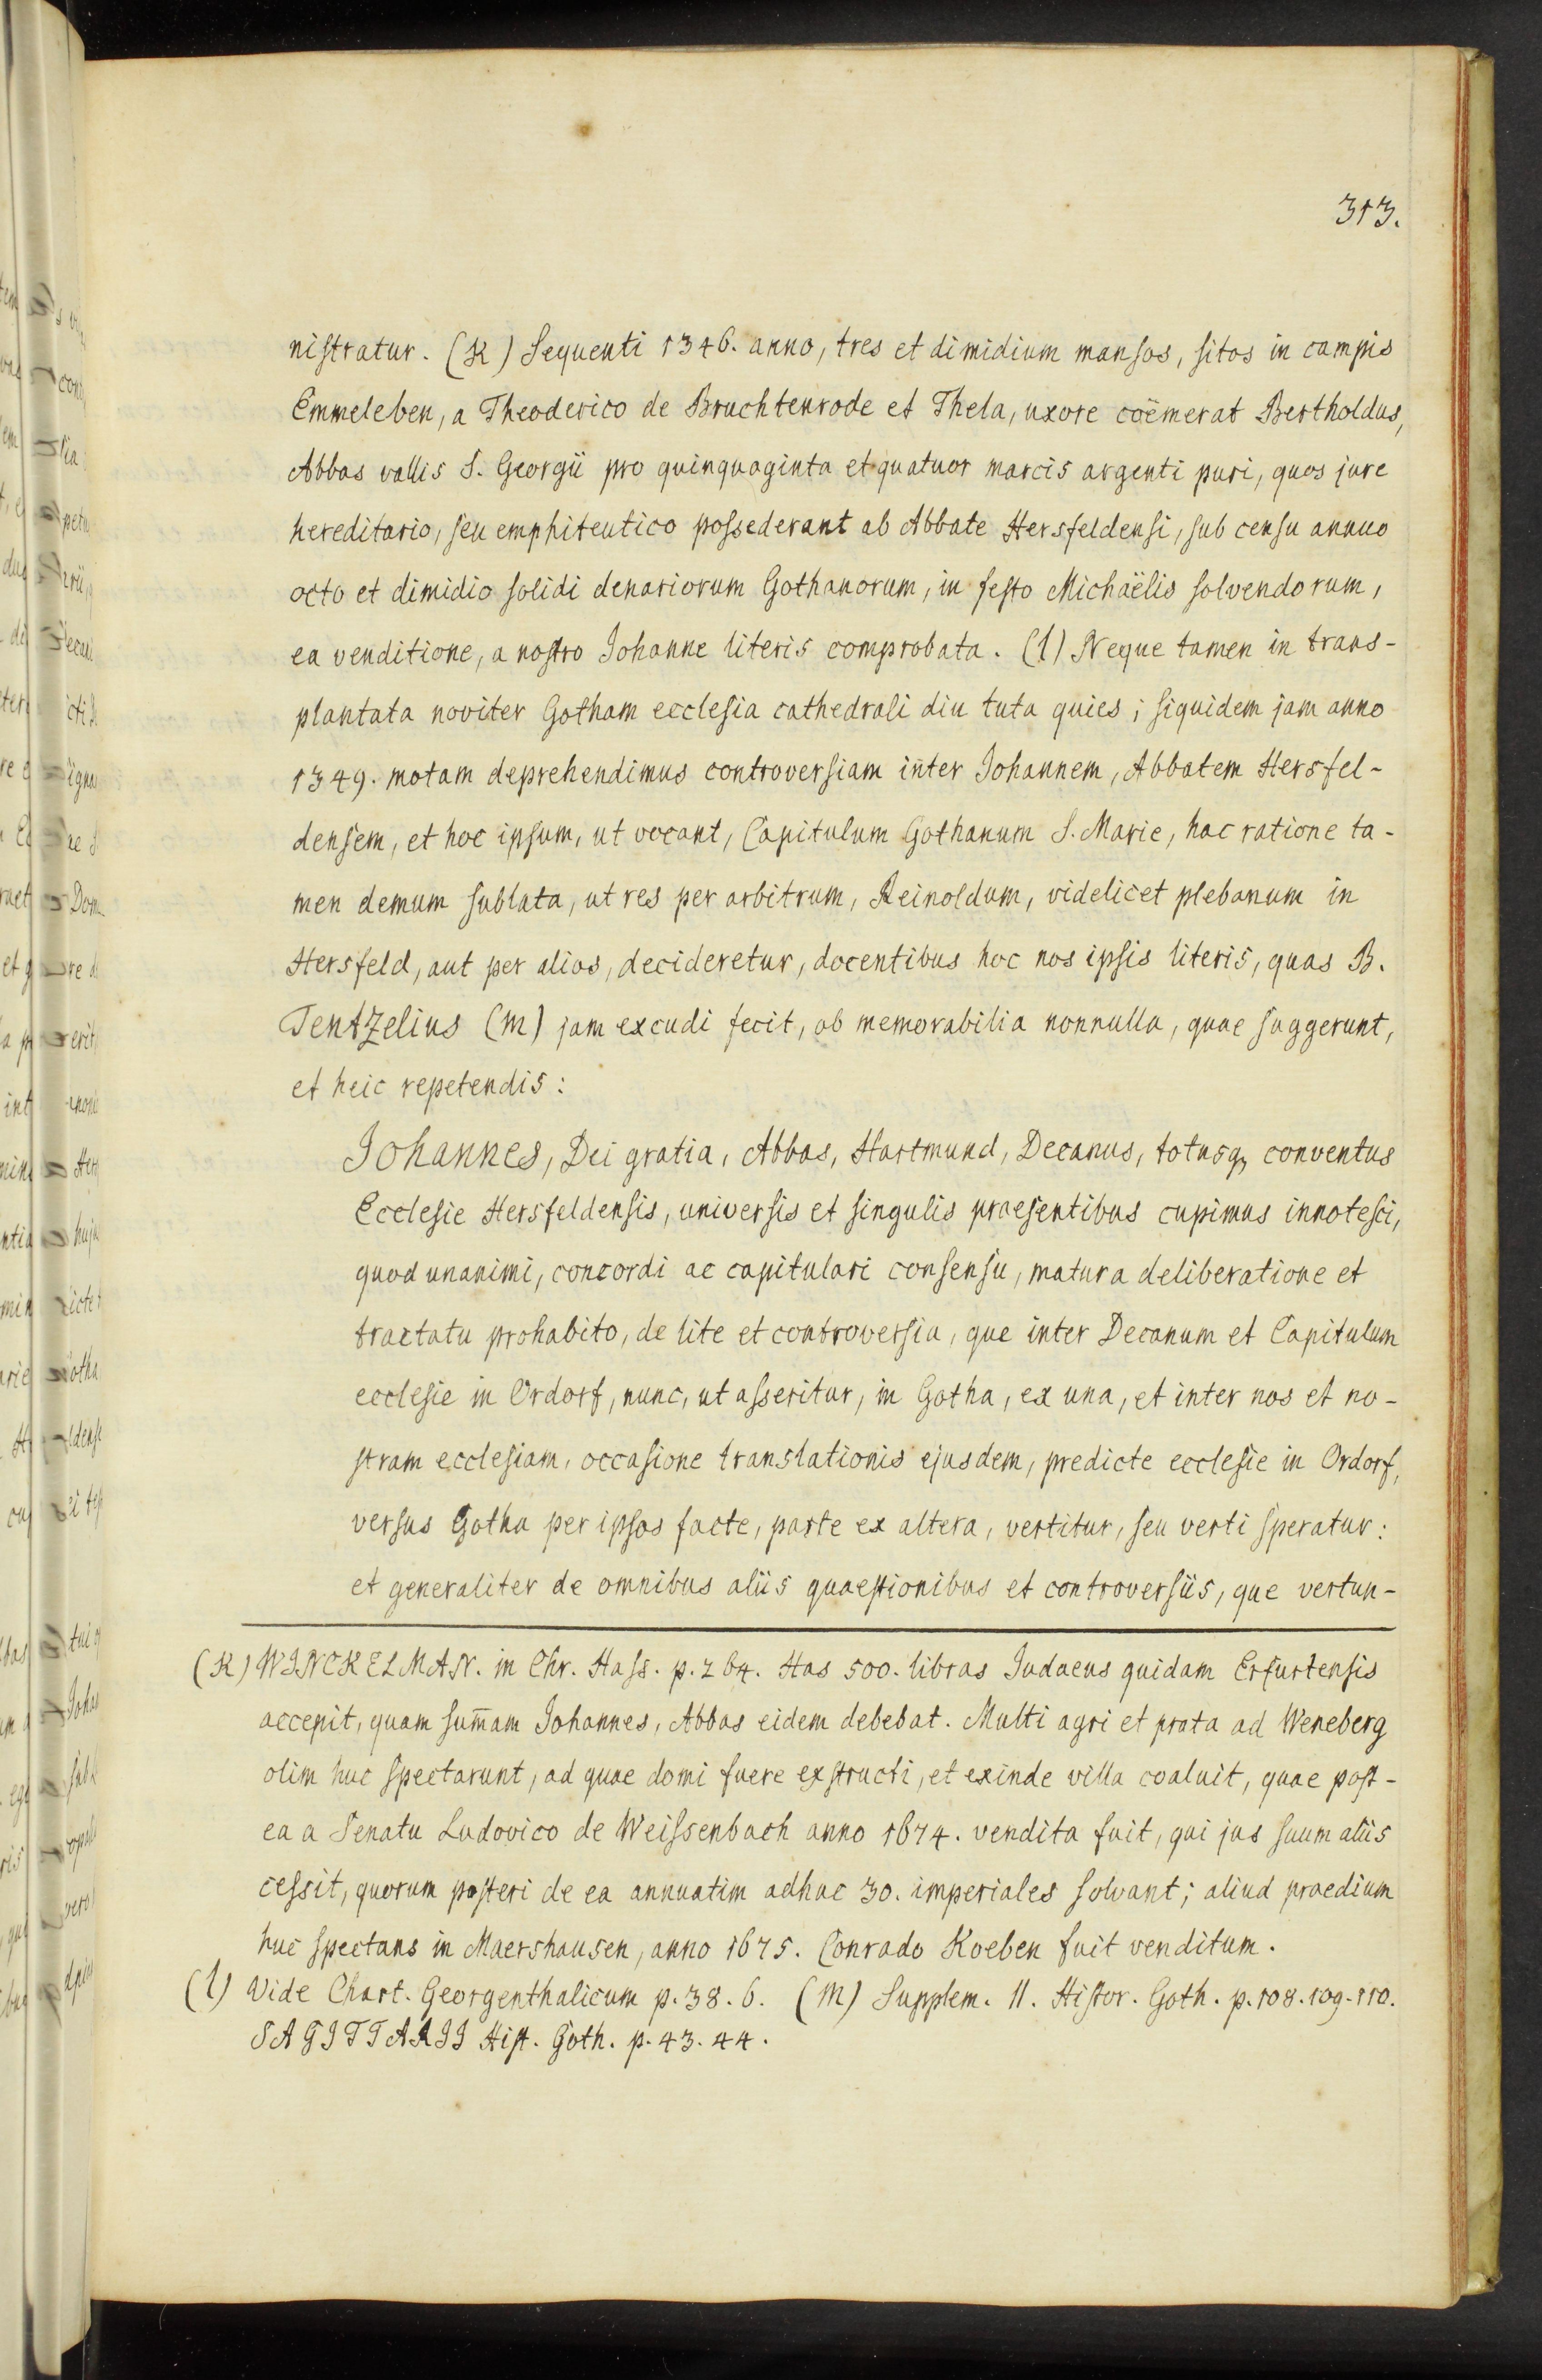 313.
nistratur. (K) Sequenti 1346. anno, tres et dimidium mansos, sitos in campis
Emmeleben, a Theoderico de Bruchtenrode et Thela, uxore coëmerat Bertholdus,
Abbas vallis S. Georgii pro quinquaginta et quatuor marcis argenti puri, quos jure
hereditario, seu emphiteutico possederant ab Abbate Hersfeldensi, sub censu annuo
octo et dimidio solidi denariorum Gothanorum, in festo Michaëlis solvendorum,
ea venditione, a nostro Johanne literis comprobata. (l) Neque tamen in trans-
plantata noviter Gotham ecclesia cathedrali diu tuta quies; siquidem jam anno
1349. motam deprehendimus controversiam inter Johannem, Abbatem Hersfel-
densem, et hoc ipsum, ut vocant, Capitulum Gothanum S. Marie, hac ratione ta-
men demum sublata, ut res per arbitrum, Reinoldum, videlicet plebanum in
Hersfeld, aut per alios, decideretur, docentibus hoc nos ipsis literis, quas B.
Tentzelius (m) jam excudi fecit, ob memorabilia nonnulla, quae suggerunt,
et heic repetendis:
Johannes, Dei gratia, Abbas, Hartmund, Decanus, totusq, conventus
Ecclesie Hersfeldensis, universis et singulis praesentibus cupimus innotesci,
quod unanimi, concordi ac capitulari consensu, matura deliberatione et
tractatu prohabito, de lite et controversia, que inter Decanum et Capitulum
ecclesie in Ordorf, nunc, ut asseritur, in Gotha, ex una, et inter nos et no-
stram ecclesiam, occasione translationis ejusdem, predicte ecclesie in Ordorf,
versus Gotha per ipsos facte, parte ex altera, vertitur, seu verti speratur:
et generaliter de omnibus aliis quaestionibus et controversiis, que vertun-
(K) WINCKELMAN. in Chr. Hass. p. 264. Has 500. libras Judaeus quidam Erfurtensis
accepit, quam sum̄am Johannes, Abbas eidem debebat. Multi agri et prata ad Weneberg
olim huc spectarunt, ad quae domi fuere exstructi, et exinde villa coaluit, quae post-
ea a Senatu Ludovico de Weissenbach anno 1674. vendita fuit, qui jus suum aliis
cessit, quorum posteri de ea annuatim adhuc 30. imperiales solvant; aliud praedium
huc spectans in Maershausen, anno 1675. Conrado Koeben fuit venditum.
(l) Vide Chart. Georgenthalicum p. 38. 6. (m) Supplem. II. Histor. Goth. p. 108. 109. 110.
SAGITTARII Hist. Goth. p. 43. 44.